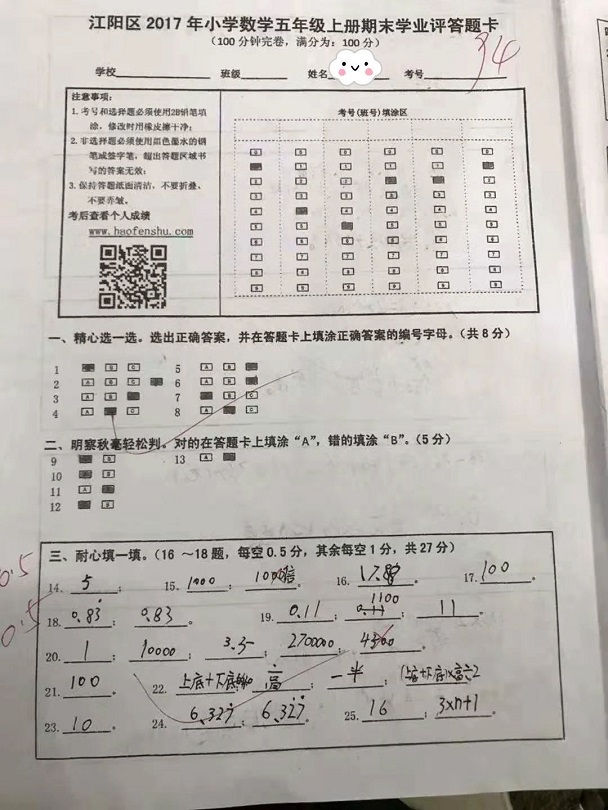 江阳区 2017 年小学数学五年级上册期末学业评答题卡
(100 分钟完卷，满分为：100 分)
94
学校 班级 姓名 考号
注意事项：
1. 考号和选择题必须使用2B铅笔填涂，修改时用橡皮擦干净；
2. 非选择题必须使用黑色墨水的钢笔或签字笔，超出答题区域书写的答案无效；
3. 保持答题纸面清洁，不要折叠、不要弄皱。
考后查看个人成绩
www.haofenshu.com
考号(班号)填涂区
一、精心选一选。选出正确答案，并在答题卡上填涂正确答案的编号字母。(共 8 分)
1 5
2 6
3 7
4 8
二、明察秋毫轻松判。对的在答题卡上填涂“A”，错的填涂“B”。(5 分)
9 13
10
11
12
三、耐心填一填。(16 ～18 题，每空 0.5 分，其余每空 1 分，共 27 分)
0.5
14. 5 ； 15. 1000 ； 。 16. 。 17. 100 。
0.5
18. 0.83 ； 0.83 。 19. 0.11 ； 1100 ； 11 。
20. 1 ； 10000 ； 3.5 ； 2700000 ； 4300 。
21. 100 。 22. 上底+下底 ； 高 ； 一半 ； (上底+下底)×高÷2
23. 10 。 24. 6.327̇ ； 6.32̇7̇ 。 25. 16 ； 3×n+1 。